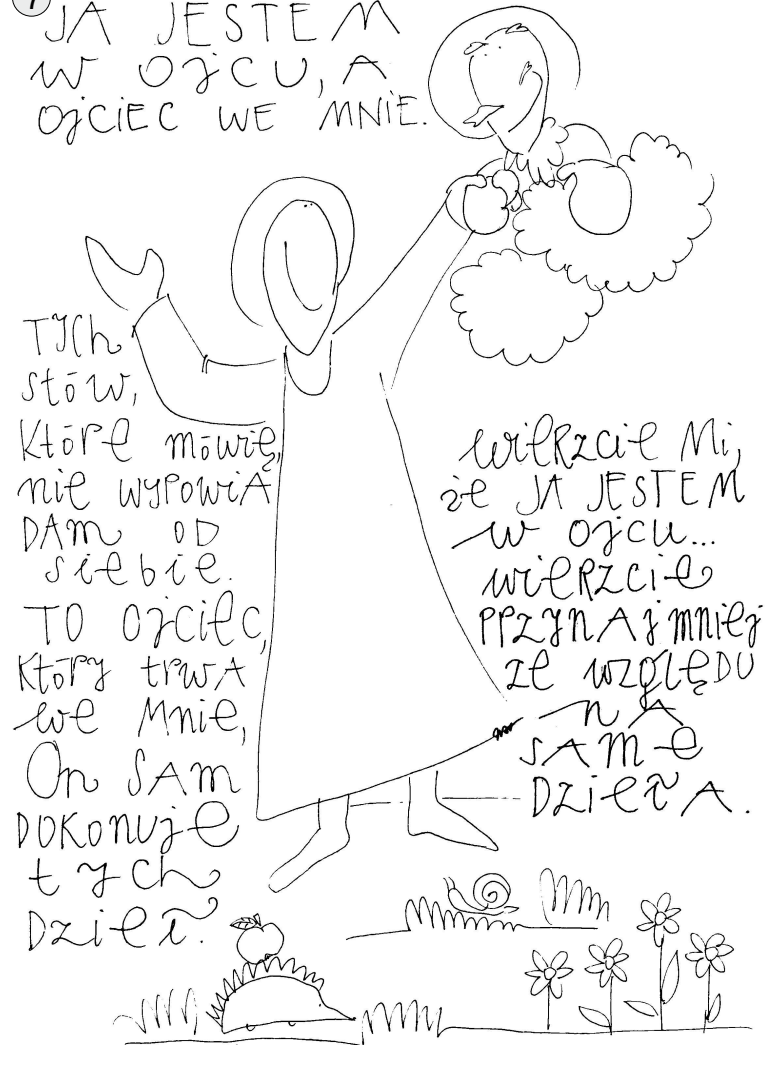 JA JESTEM
W OJCU, A
OJCIEC WE MNIE.
TYCH
słów,
które mówię,
nie wypowiA
DAM OD
siebie.
TO OJCIEC,
który trwA
we Mnie,
On SAM
DOKONUJE
tych
Dzieł.
wieRzcie Mi,
że JA JESTEM
w OJCU...
wieRzcie
PRZYNAJMNIEJ
ze wzglęDU
nA
SAMe
DZIEłA.